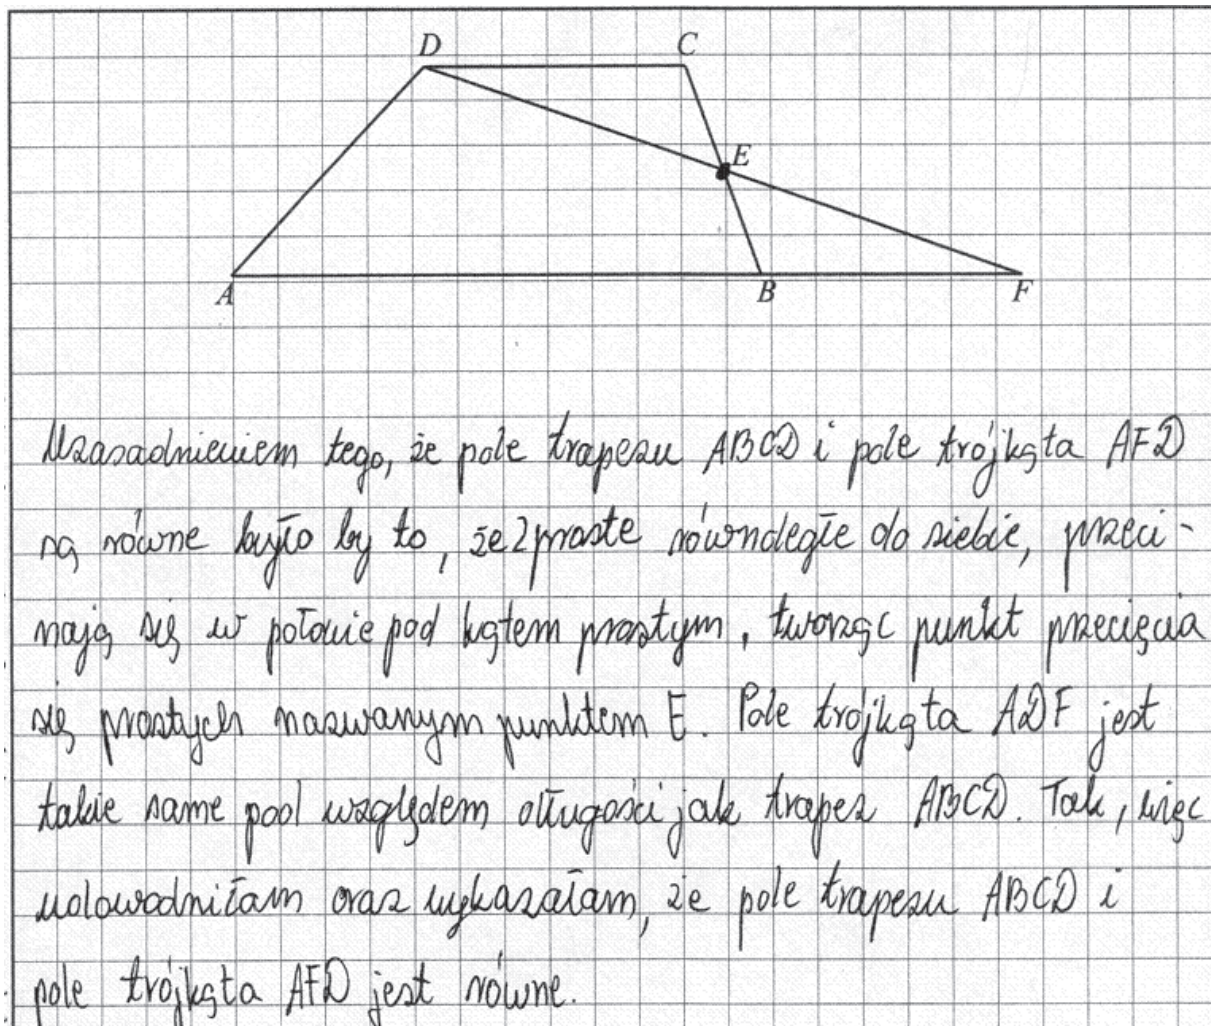 D C
E
A B F
Uzasadnieniem tego, że pole trapezu ABCD i pole trójkąta AFD
są równe było by to, że 2 proste równoległe do siebie, przeci-
nają się w połowie pod kątem prostym, tworząc punkt przecięcia
się prostych nazwanym punktem E. Pole trójkąta ADF jest
takie same pod względem długości jak trapez ABCD. Tak, więc
udowodniłam oraz wykazałam, że pole trapezu ABCD i
pole trójkąta AFD jest równe.